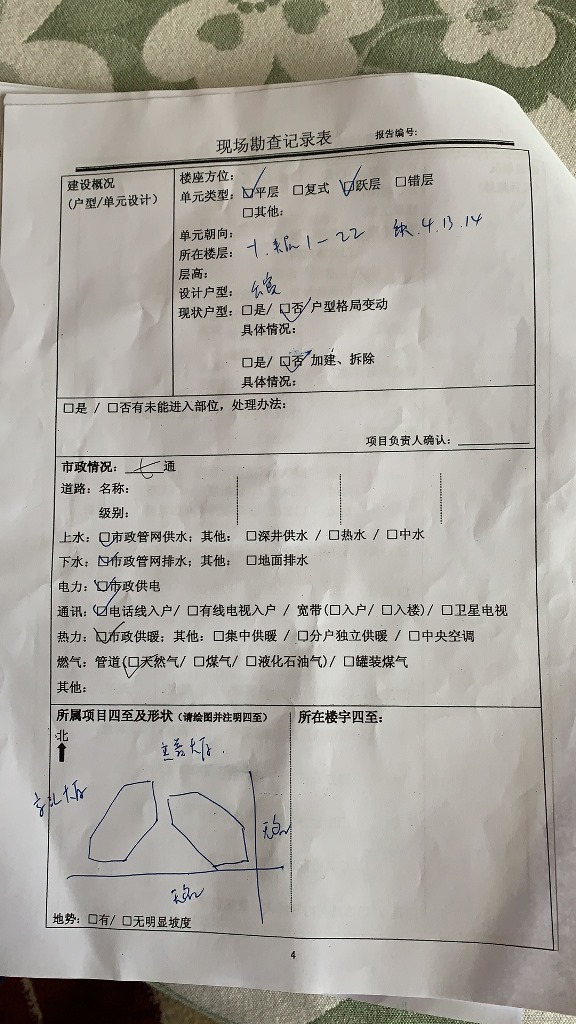 现场勘查记录表 报告编号:
建设概况
(户型/单元设计)
楼座方位:
单元类型: ☑平层 □复式 ☑跃层 □错层
□其他:
单元朝向:
所在楼层: 1-22 缺.4.13.14
层高:
设计户型:
现状户型: □是/ ☑否 户型格局变动
具体情况:
□是/ ☑否 加建、拆除
具体情况:
□是 / □否有未能进入部位,处理办法:
项目负责人确认:
市政情况: 七 通
道路: 名称:
级别:
上水: ☑市政管网供水; 其他: □深井供水 / □热水 / □中水
下水: ☑市政管网排水; 其他: □地面排水
电力: ☑市政供电
通讯: ☑电话线入户/ □有线电视入户 / 宽带(□入户/ □入楼)/ □卫星电视
热力: ☑市政供暖; 其他: □集中供暖 / □分户独立供暖 / □中央空调
燃气: 管道(☑天然气/ □煤气/ □液化石油气)/ □罐装煤气
其他:
所属项目四至及形状 (请绘图并注明四至)
所在楼宇四至:
北
大厦
大厦
地势: □有/ □无明显坡度
4